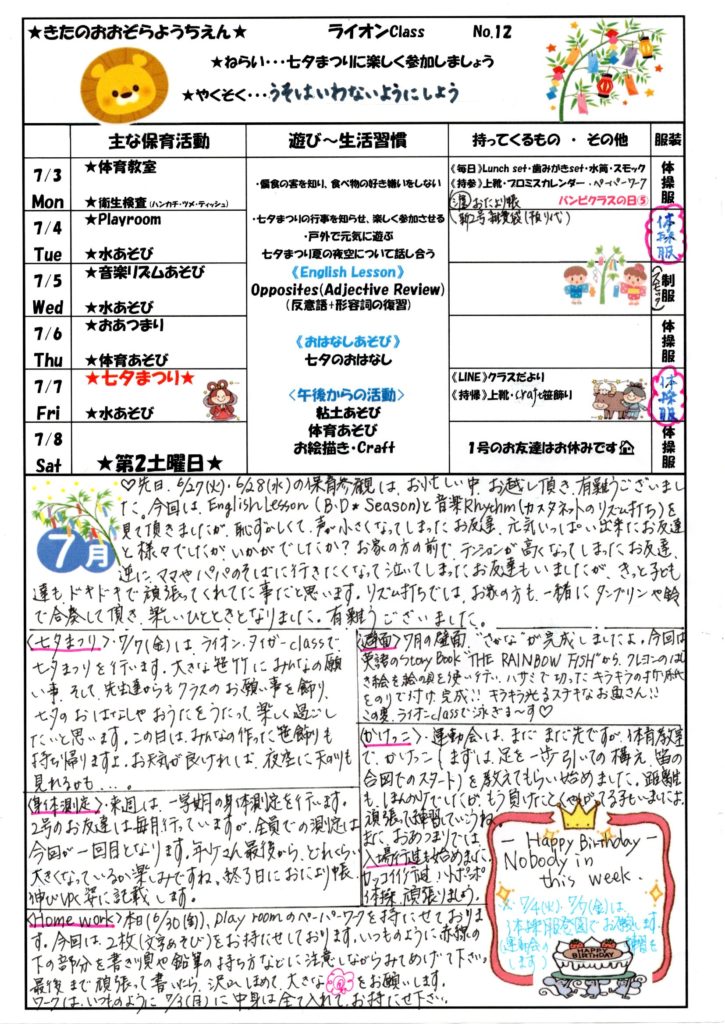 ★きたのおおぞらようちえん★ ライオンClass No.12
★ねらい・・・七夕まつりに楽しく参加しましょう
★やくそく・・・うそはいわないようにしよう
主な保育活動 遊び～生活習慣 持ってくるもの ・ その他 服装
7/3 Mon
★体育教室
★衛生検査(ハンカチ・ツメ・ティッシュ)
・偏食の害を知り、食べ物の好き嫌いをしない
《毎日》Lunch set・歯みがきset・水筒・スモック
《持参》上靴・プロミスカレンダー・ペーパーワーク
おたより帳 バンビクラスの日⑤
体操服
7/4 Tue
★Playroom
★水あそび
・七夕まつりの行事を知らせ、楽しく参加させる
・戸外で元気に遊ぶ
七夕まつり夏の夜空について話し合う
体操服
7/5 Wed
★音楽リズムあそび
★水あそび
《English Lesson》
Opposites(Adjective Review)
(反意語+形容詞の復習)
制服
(スモック)
7/6 Thu
★おあつまり
★体育あそび
《おはなしあそび》
七夕のおはなし
体操服
7/7 Fri
★七夕まつり★
★水あそび
<午後からの活動>
粘土あそび
体育あそび
お絵描き・Craft
《LINE》クラスだより
《持帰》上靴・Craft笹飾り
体操服
7/8 Sat
★第2土曜日★
1号のお友達はお休みです
体操服
7月
♡先日、6/27(火)・6/28(水)の保育参観は、お忙しい中、お越し頂き、有難うございまし
た。今回は、English Lesson (B.D★Season)と音楽Rhythm(カスタネットのリズム打ち)を
見て頂きましたが、恥ずかしくて、声が小さくなってしまったお友達、元気いっぱい出来たお友達
と様々でしたが、いかがでしたか?お家の方の前で、テンションが高くなってしまったお友達、
逆に、ママやパパのそばに行きたくなって泣いてしまったお友達もいましたが、きっと子ども
達もドキドキで頑張ってくれてた事だと思います。リズム打ちでは、お家の方も、一緒にタンブリンや鈴
で合奏して頂き、楽しいひとときとなりました。有難うございました。
<七夕まつり>・7/7(金)は、ライオン・タイガーclassで
七夕まつりを行います。大きな笹竹にみんなの願
い事、そして、先生達からもクラスのお願い事を飾り、
七夕のおはなしやおうたをうたって、楽しく過ごし
たいと思います。この日は、みんなの作った笹飾りも
持ち帰りますよ。お天気が良ければ、夜空に天の川も
見れるかも...。
<身体測定>・来週は、一学期の身体測定を行います。
2号のお友達は毎月行っていますが、全員での測定は
今回が一回目となります。年中さん最後から、どれくらい
大きくなっているか楽しみですね。終了日におたより帳
伸びゆく姿に記載します。
<Home work>本日(6/30(金))、Play roomのペーパーワークを持たせておりま
す。今回は、2枚(文字あそび)をお持たせしております。いつものように赤線の
下の部分を書き順や鉛筆の持ち方などに注意しながらみてあげて下さい。
最後まで頑張って書いたら、沢山ほめて、大きな
をお願いします。
ワークは、いつものように7/3(月)に中身は全て入れてお持たせ下さい。
<壁面>7月の壁面"さかな"が完成しましたよ。今回は
英語のStory Book"THE RAINBOW FISH"から、クレヨンのはじ
き絵を絵の具を使い行い、ハサミで切ったキラキラの折り紙
をのりで付け完成!!キラキラ光るステキなお魚さん!!
この夏、ライオンclassで泳ぎま～す♡
<かけっこ>・運動会は、まだまだ先ですが、体育教室
で、かけっこ(まずは、足を一歩引いての構え、笛の
合図でのスタート)を教えてもらい始めました。距離
も、ほんの少しでしたが、もう負けたくやしがってる子もいましたよ。
頑張って練習していこうね。
また、おあつまりでは、
入場行進も始めました。
カッコイイ行進、ハトポッポ
体操、頑張りましょう。
— Happy Birthday —
Nobody in
this week.
※7/4(火)、7/7(金)は、
体操服登園でお願いします。
HAPPY BIRTHDAY